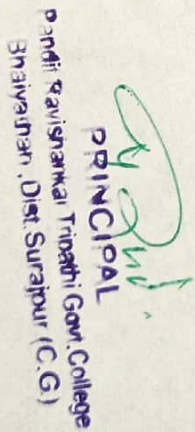 PRINCIPAL
Pandit Ravishankar Tripathi Govt. College
Bhaiyathan, Dist. Surajpur (C.G)